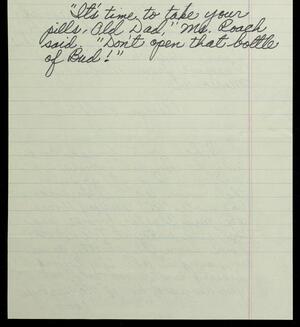 "It's time to take your
pills, Old Dad," Ms. Roach
said. "Don't open that bottle
of Bud!"